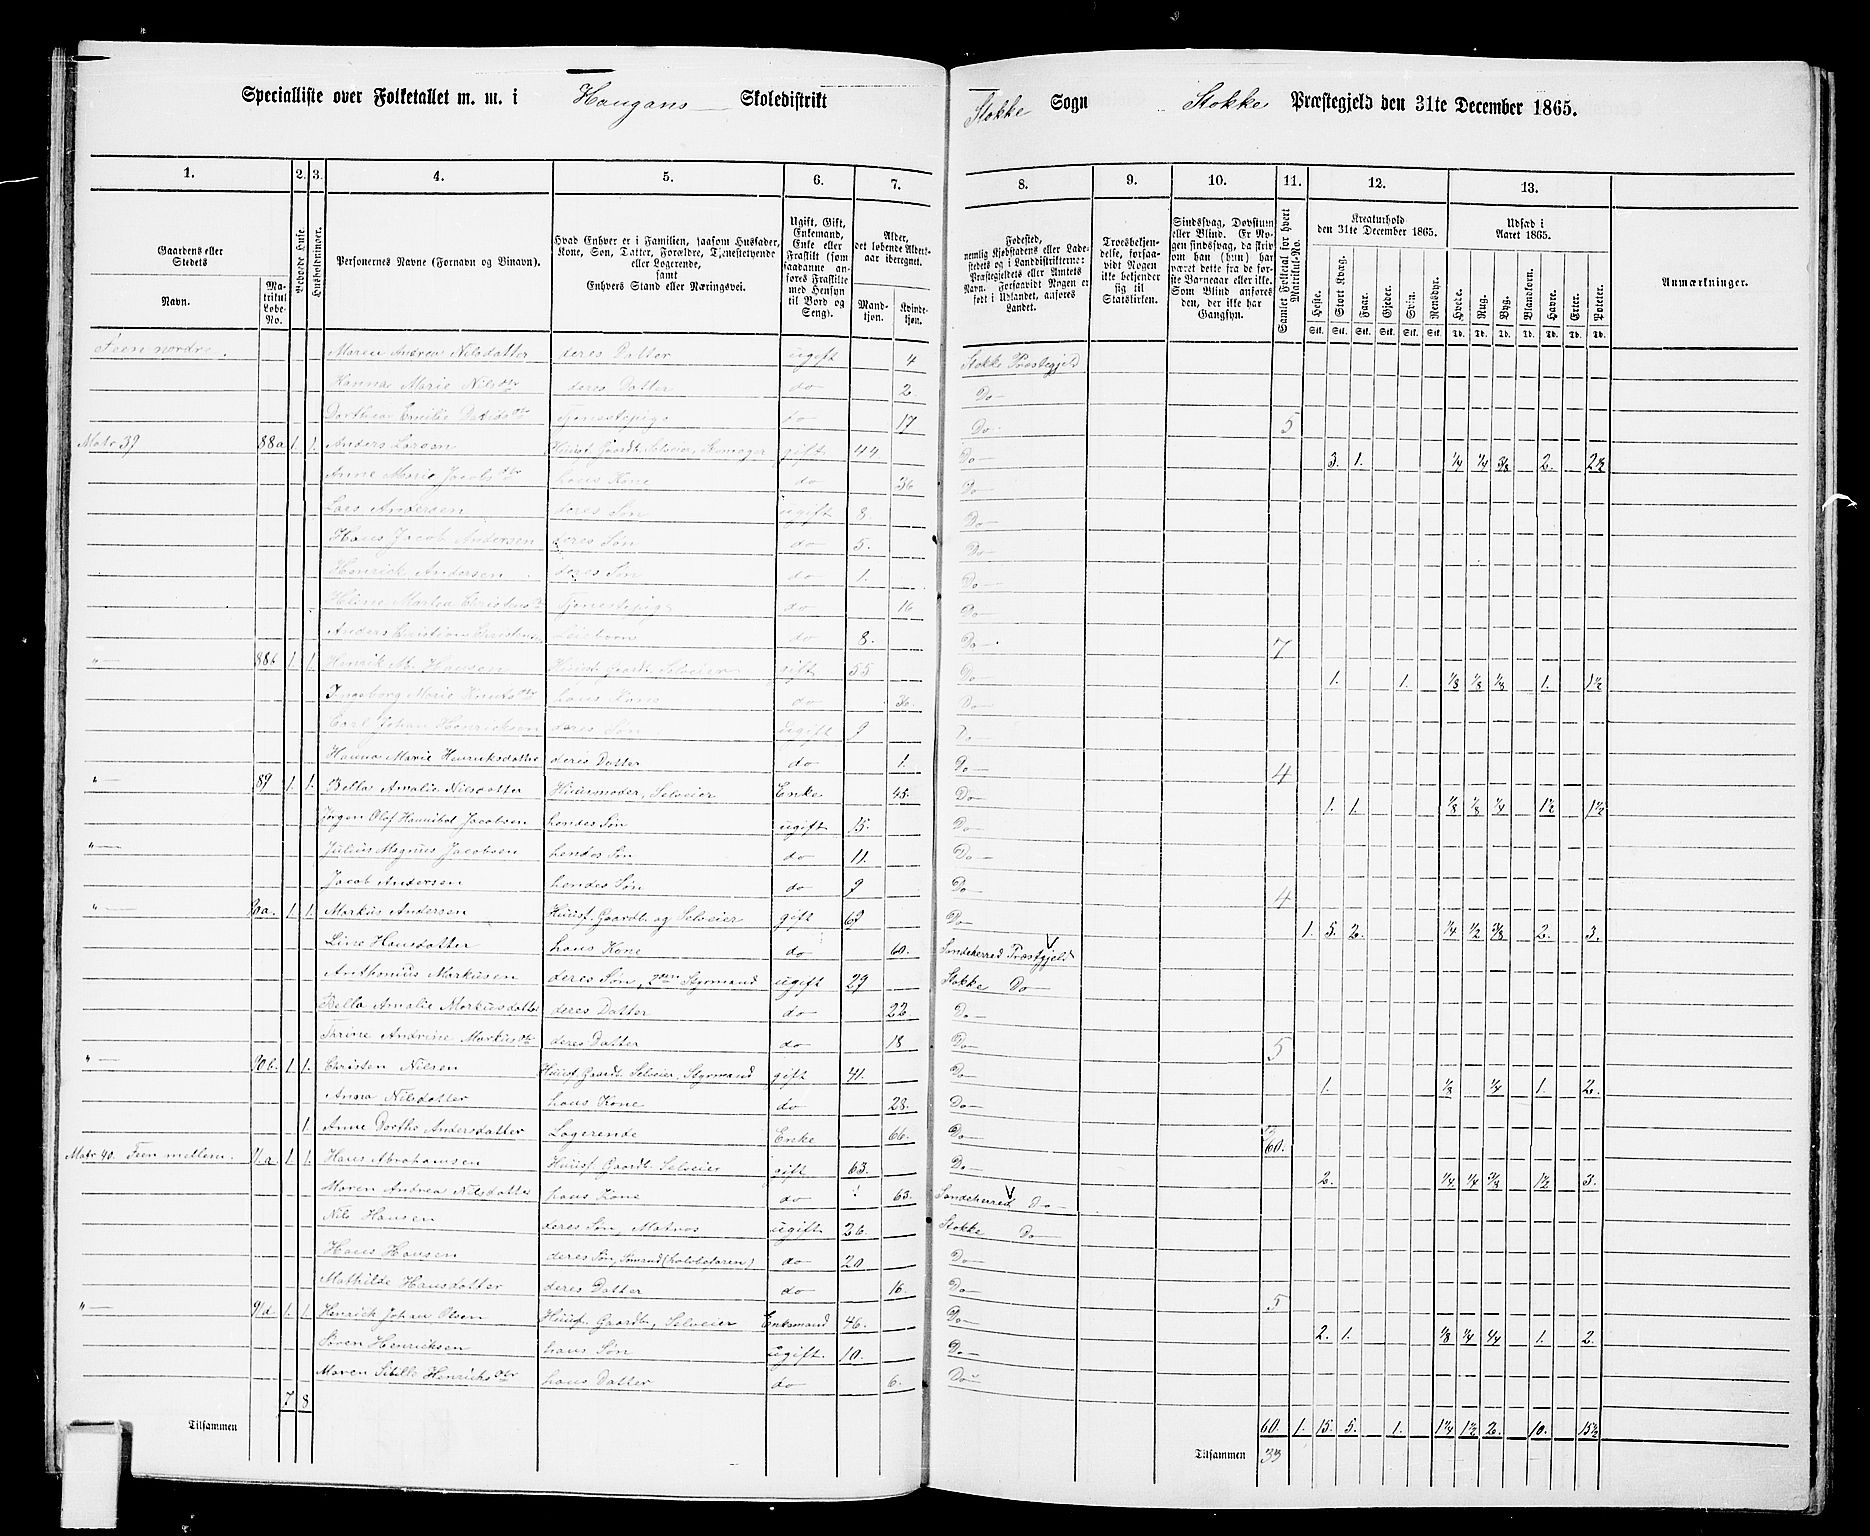 Specialliste over Folketallet m. m. i Haugans Skoledistrikt Stokke Sogn Stokke Præstegjeld den 31te December 1865.
1. 2. 3. 4. 5. 6. 7. 8. 9. 10. 11. 12. 13.
Gaardens eller Stedets
Navn.
Matrikul Løbe-No.
Beboede Huse.
Husholdninger.
Personernes Navne (Fornavn og Tilnavn).
Hvad Enhver er i Familien, saasom Husfader, Kone, Søn, Datter, Forældre, Tjenestetyende eller Logerende, samt Enhvers Stand eller Næringsvei.
Ugift, Gift, Enkemand, Enke eller Fraskilt (som saadanne anføres Fraskilte med Hensyn til Bord og Seng).
Alder, det løbende Alders-aar iberegnet.
Mand-kjøn. Kvinde-kjøn.
Fødested, nemlig Kjøbstadens eller Ladestedets og i Landdistrikterne: Præstegjeldets eller Amtets Navn. Forsaavidt Nogen er født i Udlandet, anføres Landet.
Troesbekjendelse, forsaavidt Nogen ikke bekjender sig til Statskirken.
Sindssvag, Døvstum eller Blind. Er Nogen sindssvag, da skrives om han (hun) har været dette fra de første Barneaar eller ikke. Som Blind anføres den, der ikke har Gangsyn.
Samlet Folketal for hvert Matrikul-No.
Kreaturhold den 31te December 1865.
Heste. Stort Kvæg. Faar. Gjeder. Sviin. Rensdyr.
Udsæd i Aaret 1865.
Hvede. Rug. Byg. Blandkorn. Havre. Erter. Poteter.
Anmærkninger.
Feen nordre. Maren Andrea Nilsdatter deres Datter ugift 4 Stokke Præstegjeld
Hanna Marie Nilsdtr deres Datter do 2 Do
Emilie Tjenestepige do 17 Do 5
Matr 39 88a 1. 1. Anders Larsen Huusf. Gaardb. Selveier, Skomager gift 44 Do 3. 1. 1/4 1/4 3/8 2. 2 1/2
Anne Marie Jacobsdtr hans Kone do 36 Do
Lars Andersen deres Søn ugift 8. Do
Hans Jacob Andersen deres Søn do 5. Do
Henrick Andersen deres Søn do 1. Do
Martea Tjenestepige do 16 Do
Anders Christian do 8. Do 7
"— 88b 1. 1. Henrik M. Hansen Huusf. Gaardb. Selveier gift 55 Do 1. 1. 1/8 1/8 1/8 1. 1 1/2
Ingeborg Marie Knutsdtr hans Kone do 36 Do
Carl Johan Henricksen deres Søn ugift 9 Do
Hanna Marie Henriksdatter deres Datter do 1. Do 4
"— 89 1. 1. Bella Amalie Nilsdatter Huusmoder, Selveier Enke 45. Do 1. 1. 1/8 1/8 1/4 1 1/2 1 1/2
Jørgen Olaf Hannibal Jacobsen hendes Søn ugift 15. Do
"— Julius Magnus Jacobsen hendes Søn do 11. Do
Jacob Andersen hendes Søn do 9 Do 4
"— 90a. 1. 1. Markus Andersen Huusf. Gaardb. og Selveier gift 69 Do 1. 5. 2. 1/4 1/2 3/8 2. 3.
Line Hansdatter hans Kone do 60. Sandeherred Præstgjeld
Anthonius Markusen deres Søn, 2den Styrmand ugift 29 Stokke Do
Bella Amalie Markusdatter deres Datter do 22. Do
Sarine Andrine Markusdtr deres Datter do 18 Do 5
"— 90b. 1. 1. Christen Nilsen Huusf. Gaardb. Selveier, Styrmand gift 41. Do 1. 1/8 1/4 1. 2.
Anna Nilsdatter hans Kone do 28. Do
1 Anne Dorthe Andersdatter Logerende Enke 66. Do 3 60.
Matr 40. Feen mellem. 91a. 1. 1. Hans Abrahamsen Huusf. Gaardb. Selveier gift 63. Do 2. 1/4 1/4 3/8 1 1/2 3.
Maren Andrea Nilsdatter hans Kone do 63. Sandeherred Do
Nils Hansen deres Søn, Matros ugift 26. Stokke Do
Hans Hansen deres Søn, Sømand do 20 Do
Mathilde Hansdatter deres Datter do 16. Do 5
"— 91d. 1. 1. Henrick Johan Olsen Huusf. Gaardb., Selveier Enkemand 46. Do 2. 1. 1/8 1/4 4/4 1. 2.
Søren Henriksen hans Søn ugift 10. Do
Maren Sibille Henriksdtr hans Datter do 6. Do
Tilsammen 7 8 Tilsammen 60. 33 1. 15. 5. 1. 1 1/4 1 1/2 2. 10. 15 1/2